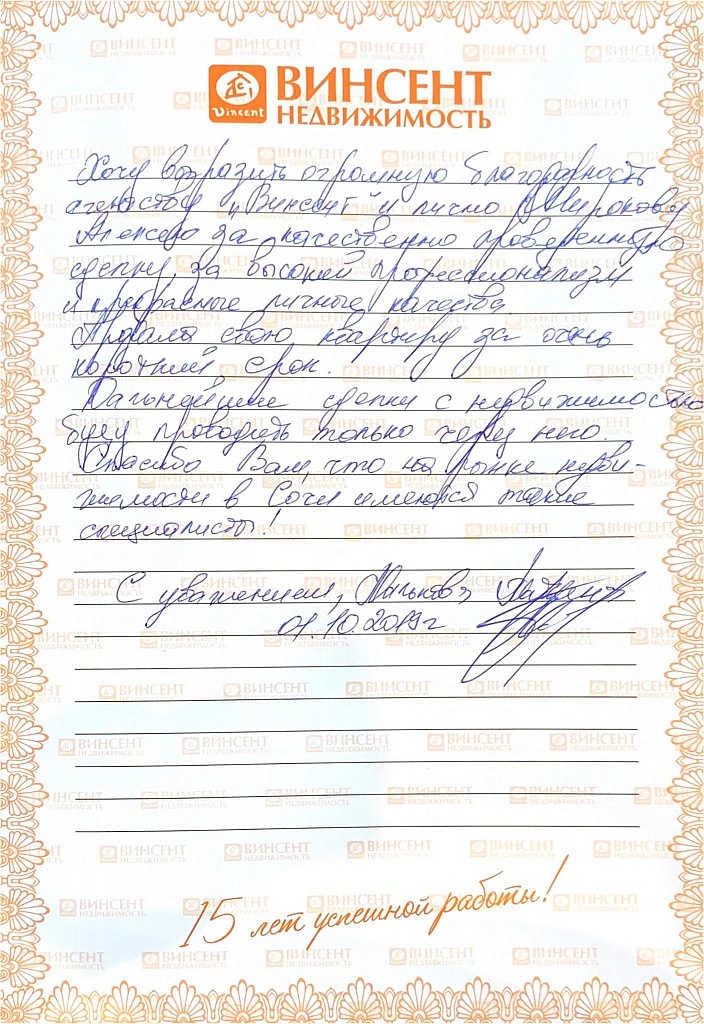 Vincent
ВИНСЕНТ
НЕДВИЖИМОСТЬ
Хочу выразить огромную благодарность
агенству „Винсент" и лично Широкову
Алексею за качественно проведенную
сделку за высокий профессионализм
и прекрасные личные качества
Продала свою квартиру за очень
короткий срок.
Дальнейшие сделки с недвижимостью
буду проводить только через него.
Спасибо Вам, что на рынке недви-
жимости в Сочи имеются такие
специалисты!
С уважением,
01.10.2019г
15 лет успешной работы!